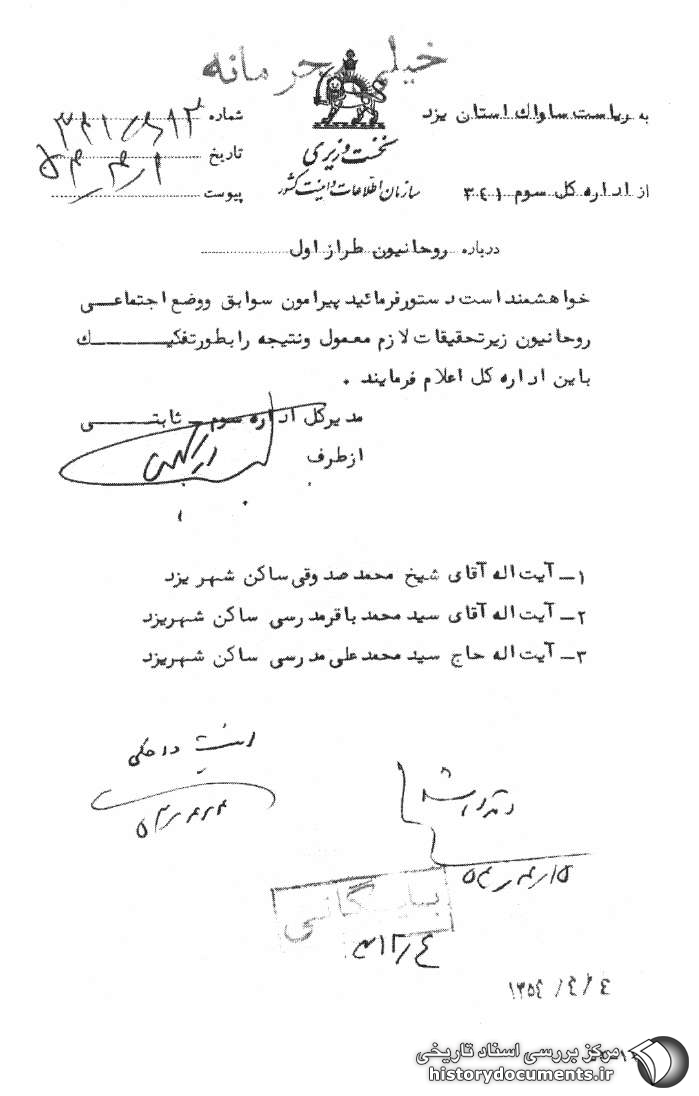 خیلی محرمانه
به ریاست ساواک استان یزد
از اداره کل سوم ۳۴۱
نخست وزیری
سازمان اطلاعات و امنیت کشور
شماره
تاریخ
پیوست
درباره روحانیون طراز اول
خواهشمند است دستور فرمائید پیرامون سوابق و وضع اجتماعی
روحانیون زیر تحقیقات لازم معمول و نتیجه را بطور تفکیک
باین اداره کل اعلام فرمایند .
مدیر کل اداره سوم ــ ثابتی
از طرف
۱ــ آیت اله آقای شیخ محمد صدوقی ساکن شهر یزد
۲ــ آیت اله آقای سید محمد باقر مدرسی ساکن شهر یزد
۳ــ آیت اله حاج سید محمد علی مدرسی ساکن شهر یزد
امنیت داخلی
۵۴/۴/۱۵
بایگانی
۱۳۵۴/۴/۴
مرکز بررسی اسناد تاریخی
historydocuments.ir